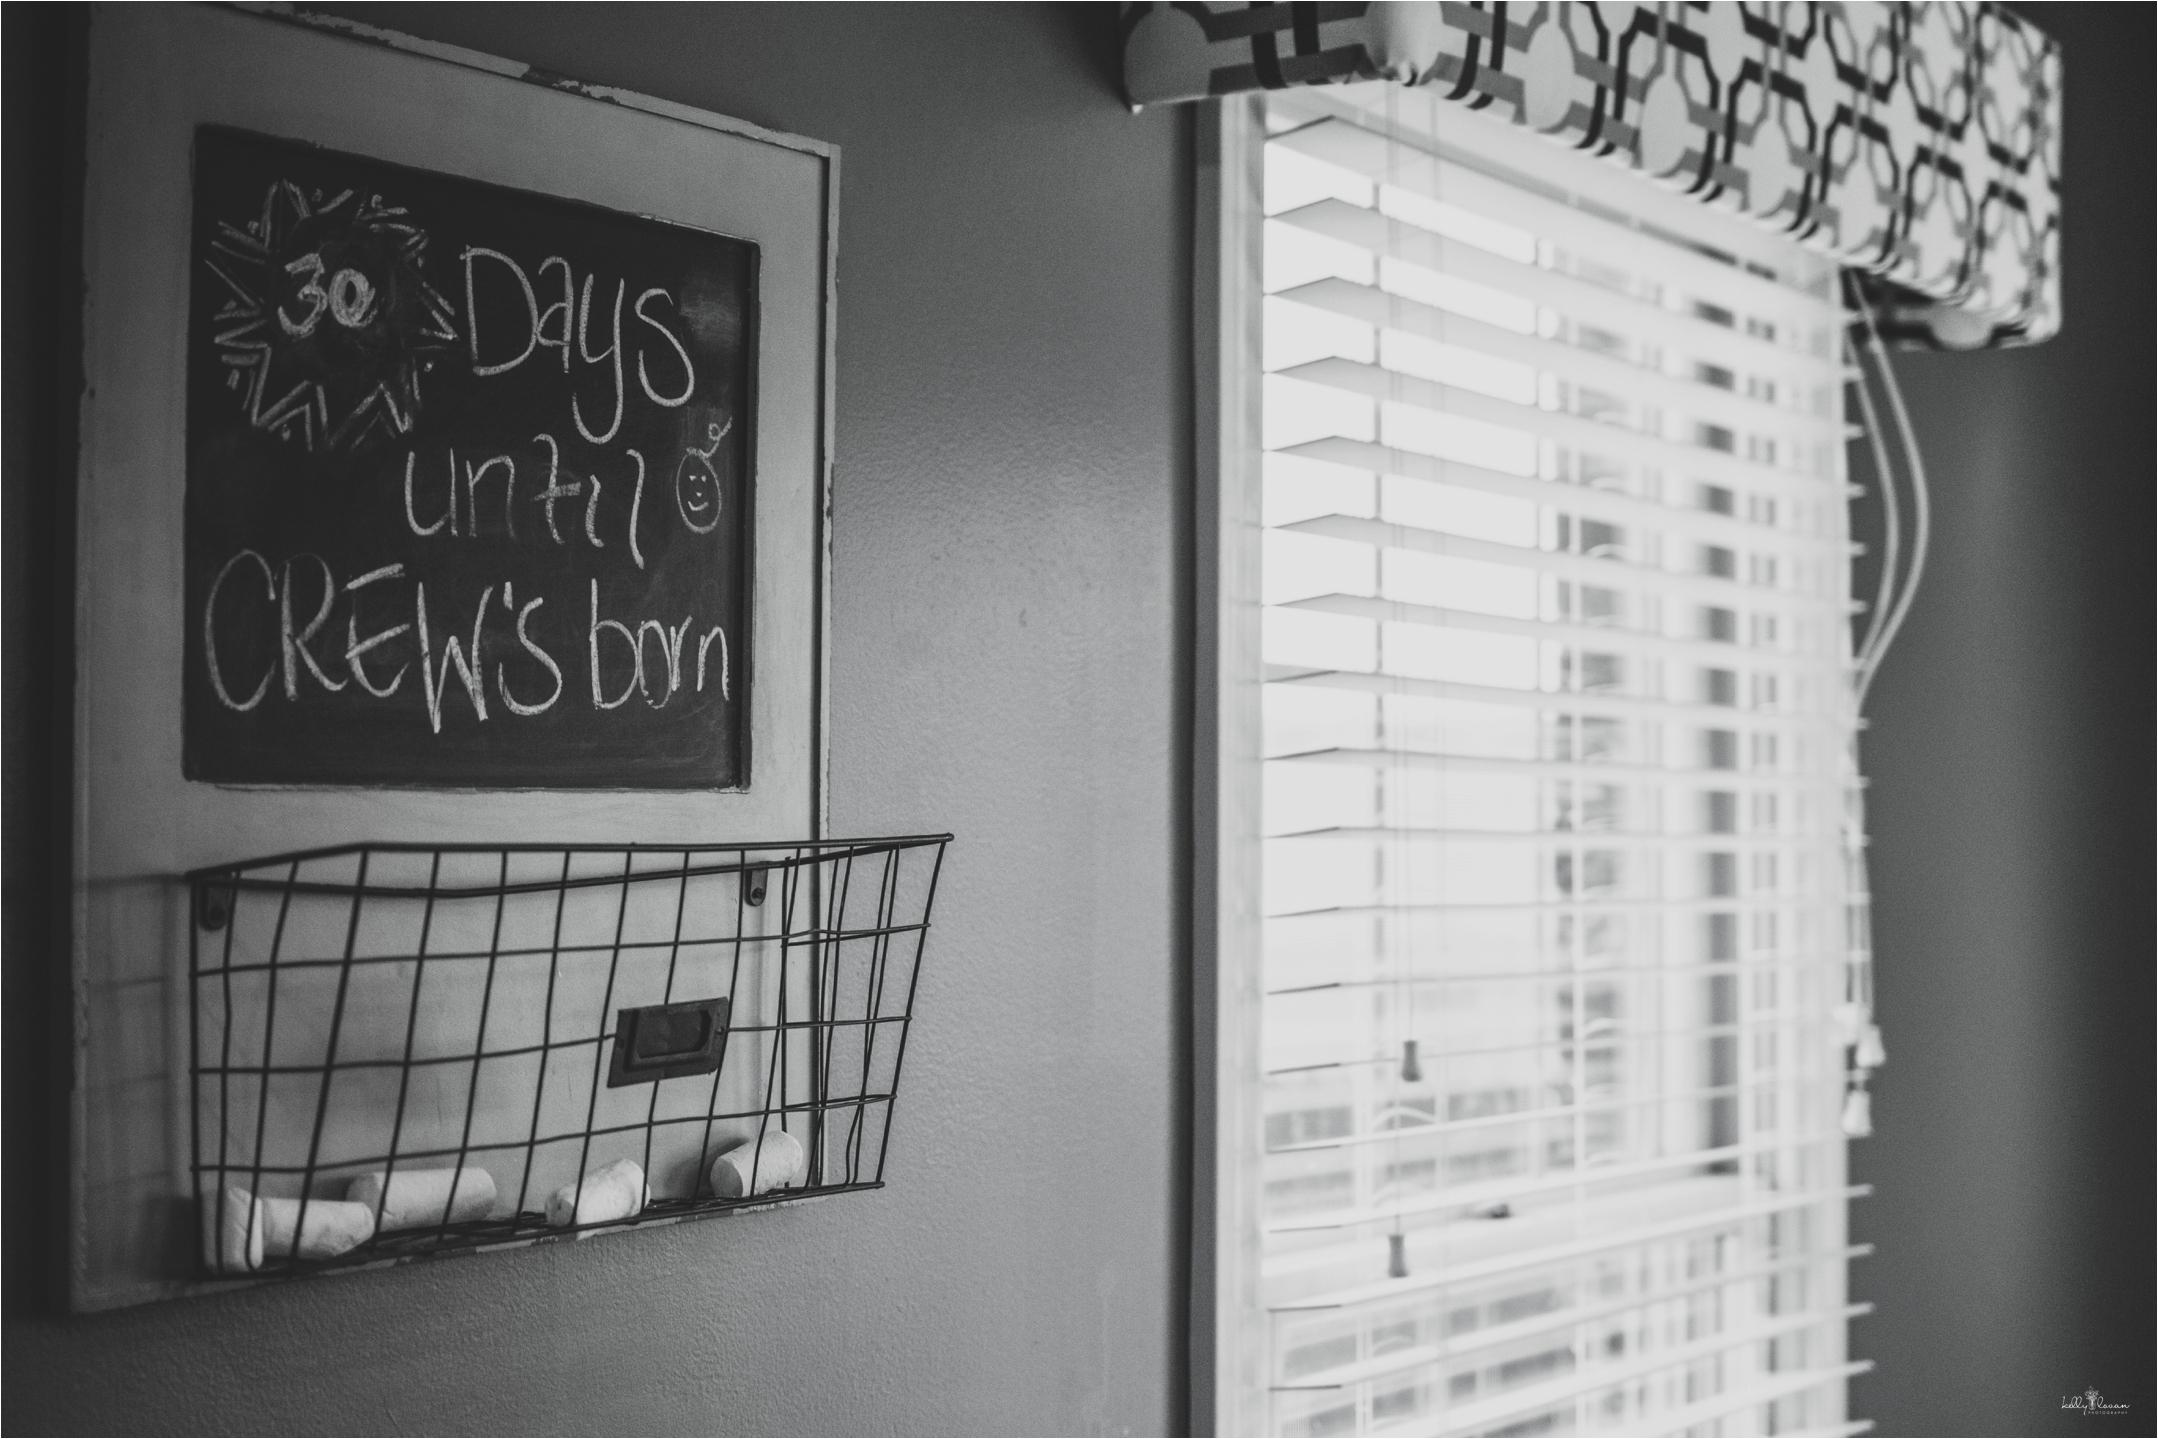 30 Days
until
CREW's born
kelly lovan
PHOTOGRAPHY